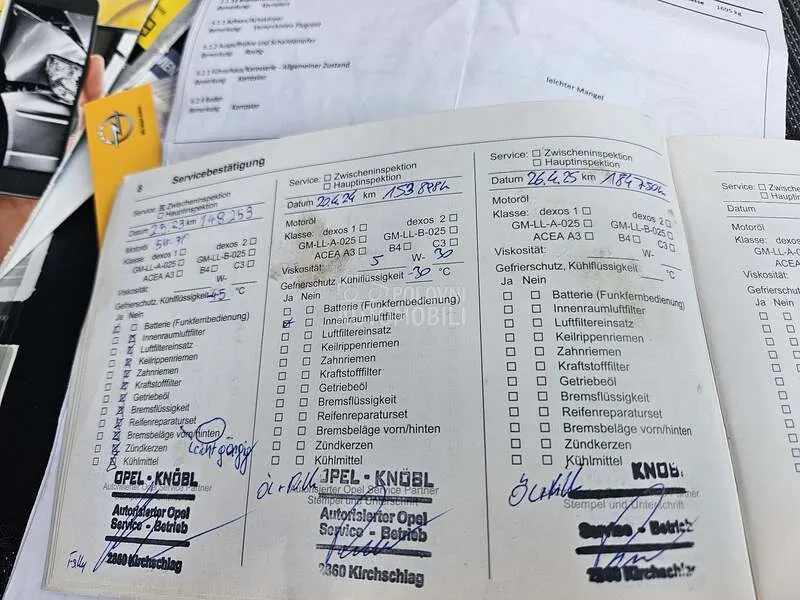 1695 kg
leichter Mangel
8 Servicebestätigung
Service: Zwischeninspektion
Hauptinspektion
Datum 2.5.23 km 148 253
Motoröl 5W-30
Klasse: dexos 1 dexos 2
GM-LL-A-025
ACEA A3 B4 C3
Viskosität: W-
Gefrierschutz, Kühlflüssigkeit °C
Ja Nein
Batterie (Funkfernbedienung)
Innenraumluftfilter
Luftfiltereinsatz
Keilrippenriemen
Zahnriemen
Kraftstofffilter
Getriebeöl
Bremsflüssigkeit
Reifenreparaturset
Bremsbeläge vorn/hinten
leichtgängig
Zündkerzen
Kühlmittel
OPEL - KNÖBL
Autorisierter Opel Service Partner
Autorisierter Opel
Service - Betrieb
2860 Kirchschlag
Service: Zwischeninspektion
Hauptinspektion
Datum 20.4.24 km 153 878
Motoröl
Klasse: dexos 1 dexos 2
GM-LL-A-025 GM-LL-B-025
ACEA A3 B4 C3
Viskosität: 5 W- 30
Gefrierschutz, Kühlflüssigkeit -30 °C
Ja Nein
Batterie (Funkfernbedienung)
Innenraumluftfilter
Luftfiltereinsatz
Keilrippenriemen
Zahnriemen
Kraftstofffilter
Getriebeöl
Bremsflüssigkeit
Reifenreparaturset
Bremsbeläge vorn/hinten
Zündkerzen
Kühlmittel
OPEL - KNÖBL
Autorisierter Opel Service Partner
Stempel und Unterschrift
Autorisierter Opel
Service - Betrieb
2860 Kirchschlag
Service: Zwischeninspektion
Hauptinspektion
Datum 26.4.25 km 184 750
Motoröl
Klasse: dexos 1 dexos 2
GM-LL-A-025 GM-LL-B-025
ACEA A3 B4 C3
Viskosität: W-
Gefrierschutz, Kühlflüssigkeit °C
Ja Nein
Batterie (Funkfernbedienung)
Innenraumluftfilter
Luftfiltereinsatz
Keilrippenriemen
Zahnriemen
Kraftstofffilter
Getriebeöl
Bremsflüssigkeit
Reifenreparaturset
Bremsbeläge vorn/hinten
Zündkerzen
Kühlmittel
Stempel und Unterschrift
Service - Betrieb
Service:
Datum
Motoröl
Klasse: dexos
GM-LL-A-025
ACEA A3
Viskosität:
Gefrierschutz
Ja Nein
POLOVNI
AUTOMOBILI